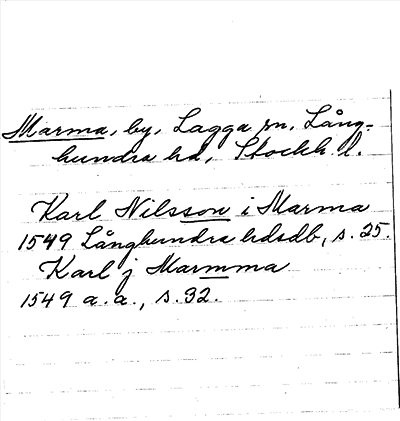 Marma, by, Lagga sn, Lång-
hundra hd, Stockh. l.
Karl Nilsson i Marma
1549 Långhundra hdsdb, s. 25.
Karl j Marmma
1549 a. a., s. 32.